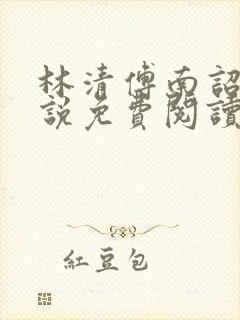 林清傅南詔
說免費閱讀
紅豆包